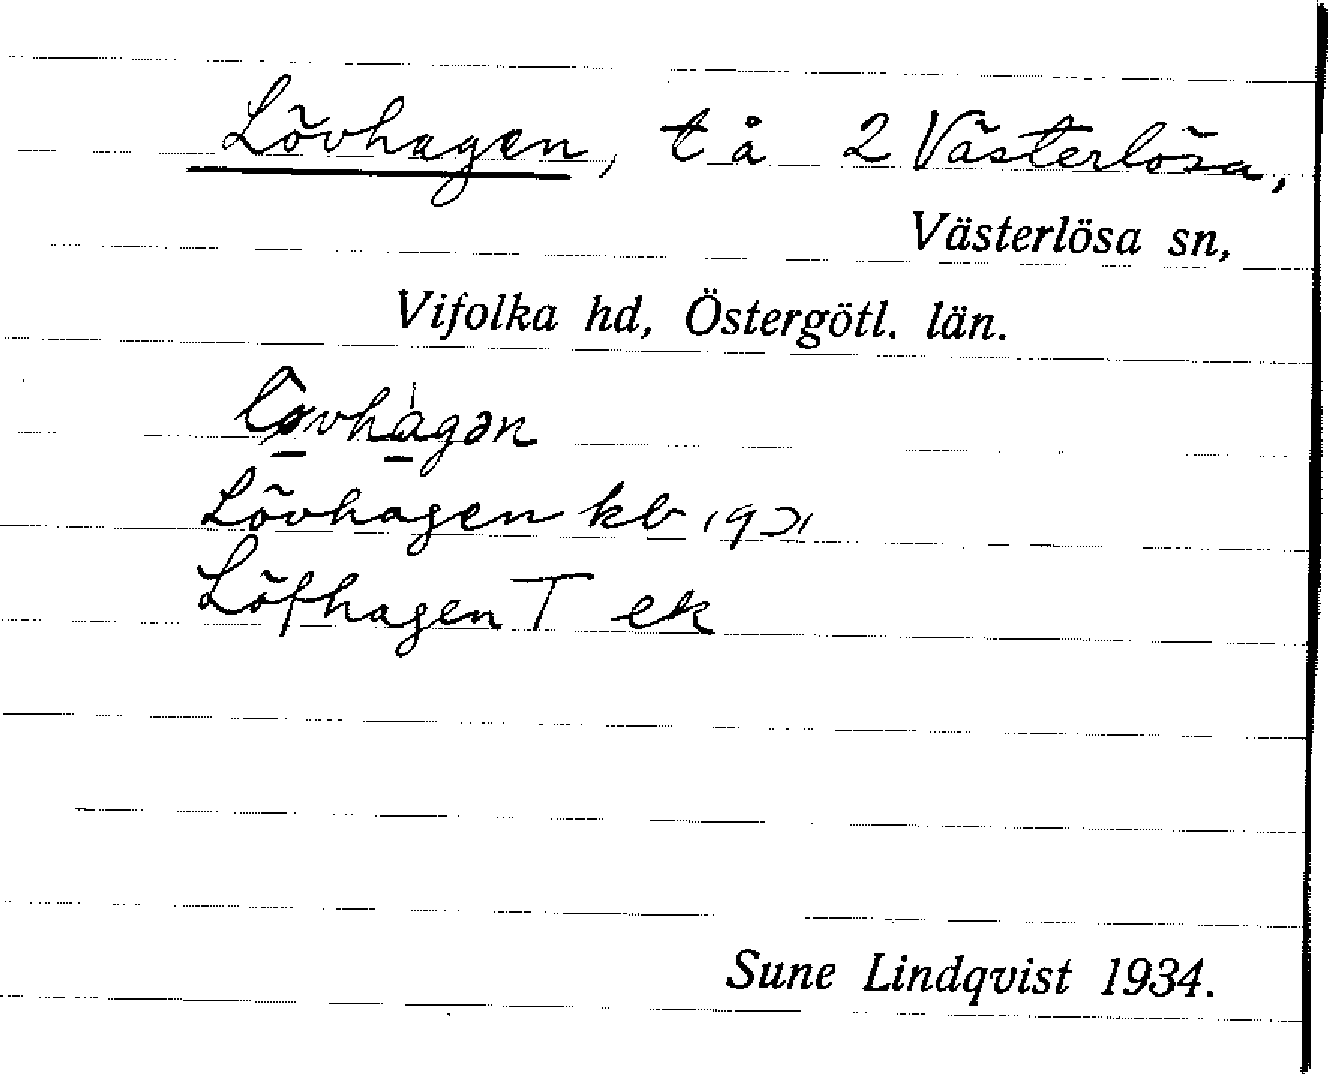 Lövhagen, t å 2 Västerlösa,
Västerlösa sn,
Vifolka hd, Östergötl. län.
Lövhagen kb 1921
Löfhagen T ek
Sune Lindqvist 1934.